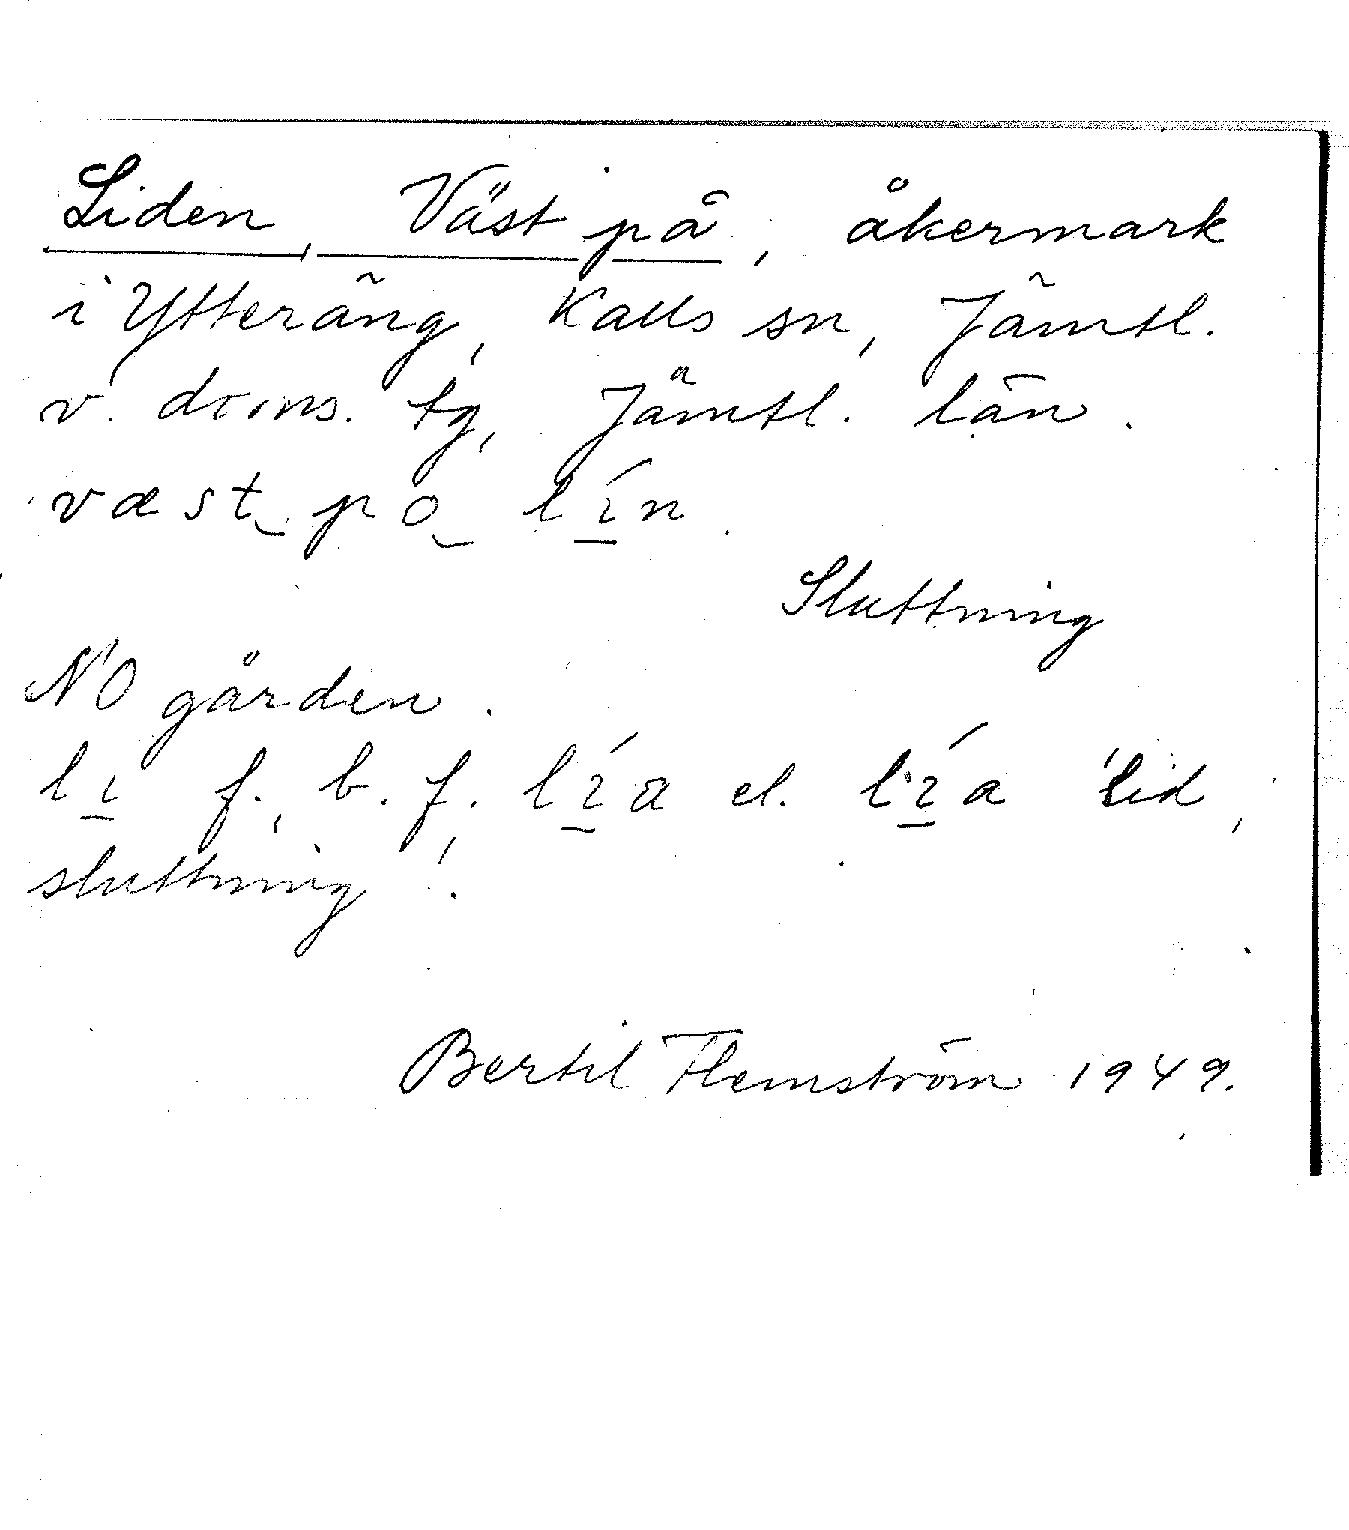 Liden, Väst på, åkermark
i Ytteräng, Kalls sn, Jämtl.
v. doms. tg, Jämtl. län.
væst‿ po‿ lín.
Sluttning
NO gården.
lı f., b. f. lía el. lía 'lid,
sluttning'.
Bertil Flemström 1949.